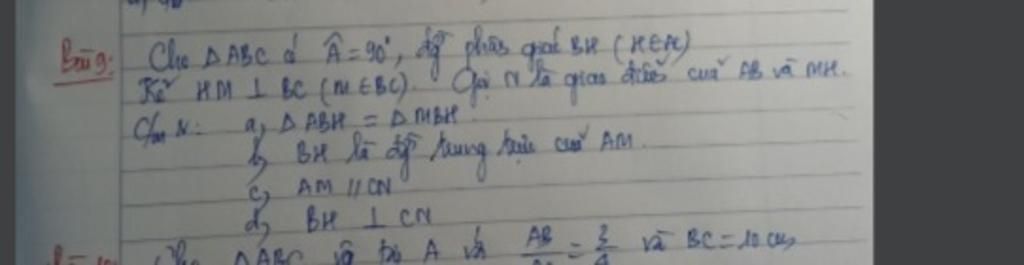 Bài 9: Cho △ABC có Â = 90°, đg phân giác BH (H∈AC)
Kẻ HM ⊥ BC (M∈BC). Gọi N là giao điểm của AB và MH.
C/m: a, △ABH = △MBH
b, BH là đg trung trực của AM.
c, AM // CN
d, BH ⊥ CN
△ABC A và AB = 3 và BC = 10 cm,
4